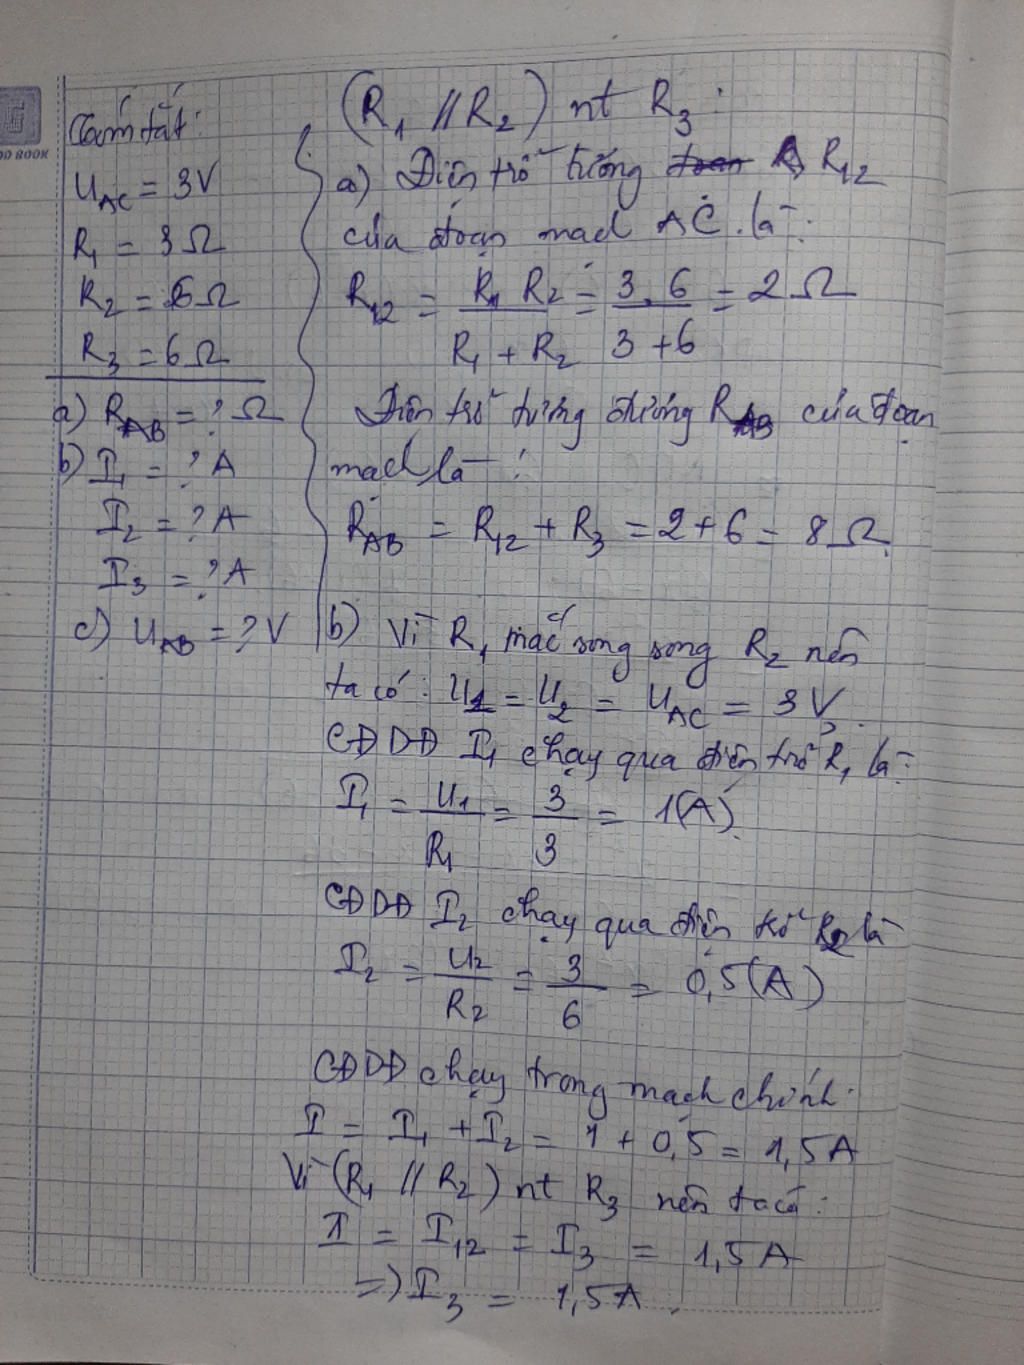 Tóm tắt:
U_AC = 3V
R_1 = 3 Ω
R_2 = 6 Ω
R_3 = 6 Ω
a) R_AB = ? Ω
b) I_1 = ? A
I_2 = ? A
I_3 = ? A
c) U_AB = ? V
(R_1 // R_2) nt R_3:
a) Điện trở tương R_12
của đoạn mạch AC là:
R_12 = R_1 R_2 / R_1 + R_2 = 3.6 / 3+6 = 2 Ω
Điện trở tương đương R_AB của đoạn
mạch là:
R_AB = R_12 + R_3 = 2+6 = 8 Ω
b) Vì R_1 mắc song song R_2 nên
ta có: U_1 = U_2 = U_AC = 3 V
CĐDĐ I_1 chạy qua điện trở R_1 là:
I_1 = U_1 / R_1 = 3 / 3 = 1(A)
CĐDĐ I_2 chạy qua điện trở R_2 là
I_2 = U_2 / R_2 = 3 / 6 = 0,5(A)
CĐDĐ chạy trong mạch chính:
I = I_1 + I_2 = 1 + 0,5 = 1,5A
Vì (R_1 // R_2) nt R_3 nên ta có:
I = I_12 = I_3 = 1,5A
=> I_3 = 1,5A.